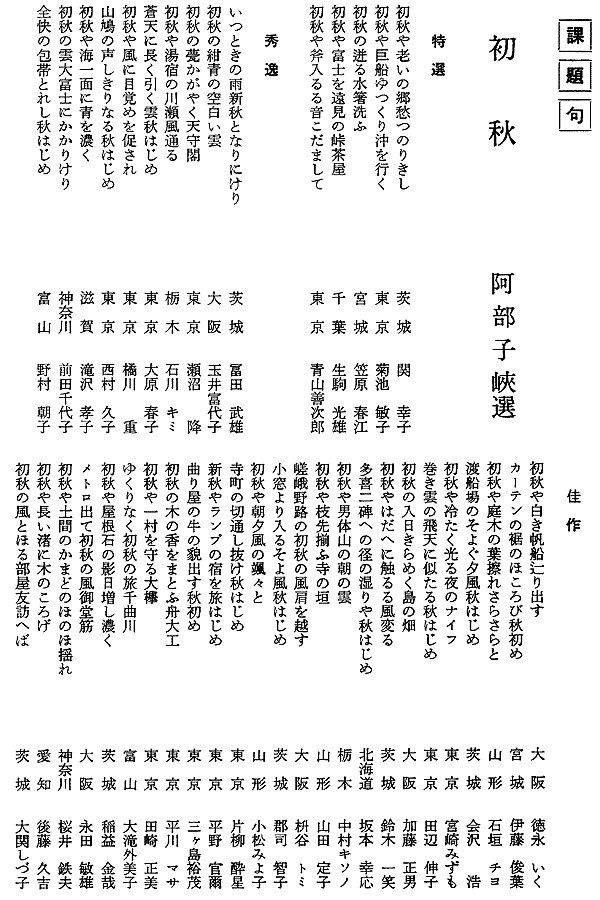 課題句
初秋
阿部子峡選
特選
初秋や老いの郷愁つのりきし 茨城 関幸子
初秋や巨船ゆつくり沖を行く 東京 菊池敏子
初秋の迸る水箸洗ふ 宮城 笠原春江
初秋や富士を遠見の峠茶屋 千葉 生駒光雄
初秋や斧入るる音こだまして 東京 青山善次郎
秀逸
いつときの雨新秋となりにけり 茨城 冨田武雄
初秋の紺青の空白い雲 大阪 玉井富代子
初秋の甍かがやく天守閣 東京 瀬沼降
初秋や湯宿の川瀬風通る 栃木 石川キミ
蒼天に長く引く雲秋はじめ 東京 大原春子
初秋や風に目覚めを促され 東京 橘川重
山鳩の声しきりなる秋はじめ 東京 西村久子
初秋や海一面に青を濃く 滋賀 滝沢孝子
初秋の雲大富士にかかりけり 神奈川 前田千代子
全快の包帯とれし秋はじめ 富山 野村朝子
佳作
初秋や白き帆船辷り出す 大阪 徳永いく
カーテンの裾のほころび秋初め 宮城 伊藤俊葉
初秋や庭木の葉擦れさらさらと 山形 石垣チヨ
渡船場のそよぐ夕風秋はじめ 茨城 会沢浩
初秋や冷たく光る夜のナイフ 東京 宮崎みずも
巻き雲の飛天に似たる秋はじめ 東京 田辺伸子
初秋の入日きらめく島の畑 大阪 加藤正男
初秋やはだへに触るる風変る 茨城 鈴木一笑
多喜二碑への径の湿りや秋はじめ 北海道 坂本幸応
初秋や男体山の朝の雲 栃木 中村キソノ
初秋や枝先揃ふ寺の垣 山形 山田定子
嵯峨野路の初秋の風肩を越す 大阪 枡谷トミ
小窓より入るそよ風秋はじめ 茨城 郡司智子
初秋や朝夕風の颯々と 山形 小松みよ子
寺町の切通し抜け秋はじめ 東京 片柳酔星
新秋やランプの宿を旅はじめ 東京 平野官爾
曲り屋の牛の貌出す秋初め 東京 三ヶ島裕茂
初秋の木の香をまとふ舟大工 東京 平川マサ
初秋や一村を守る大欅 東京 田崎正美
ゆくりなく初秋の旅千曲川 富山 大滝外美子
初秋や屋根石の影日増し濃く 茨城 稲益金哉
メトロ出て初秋の風御堂筋 大阪 永田敏雄
初秋や土間のかまどのほのほ揺れ 神奈川 桜井鉄夫
初秋や長い渚に木のころげ 愛知 後藤久吉
初秋の風とほる部屋友訪へば 茨城 大関しづ子